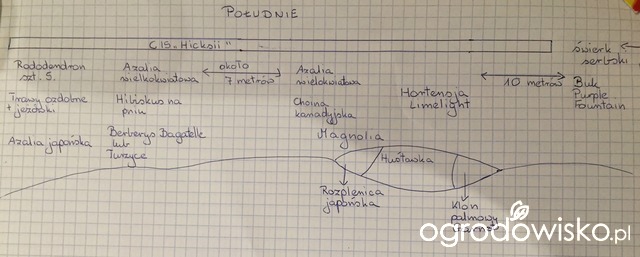 POŁUDNIE
CIS „Hicksii"
świerk
serbski
Rododendron
szt. 5
Azalia
wielkokwiatowa
około
7 metrów
Azalia
wielokwiatowa
Hortensja
Limelight
10 metrów
Buk
Purple
Fountain
Trawy ozdobne
+ jeżówki
Hibiskus na
pniu
Choina
kanadyjska
Azalia japońska
Berberys Bagatelle
lub
Turzyce
Magnolia
Huśtawka
Rozplenica
japońska
Klon
palmowy
ogrodowisko.pl